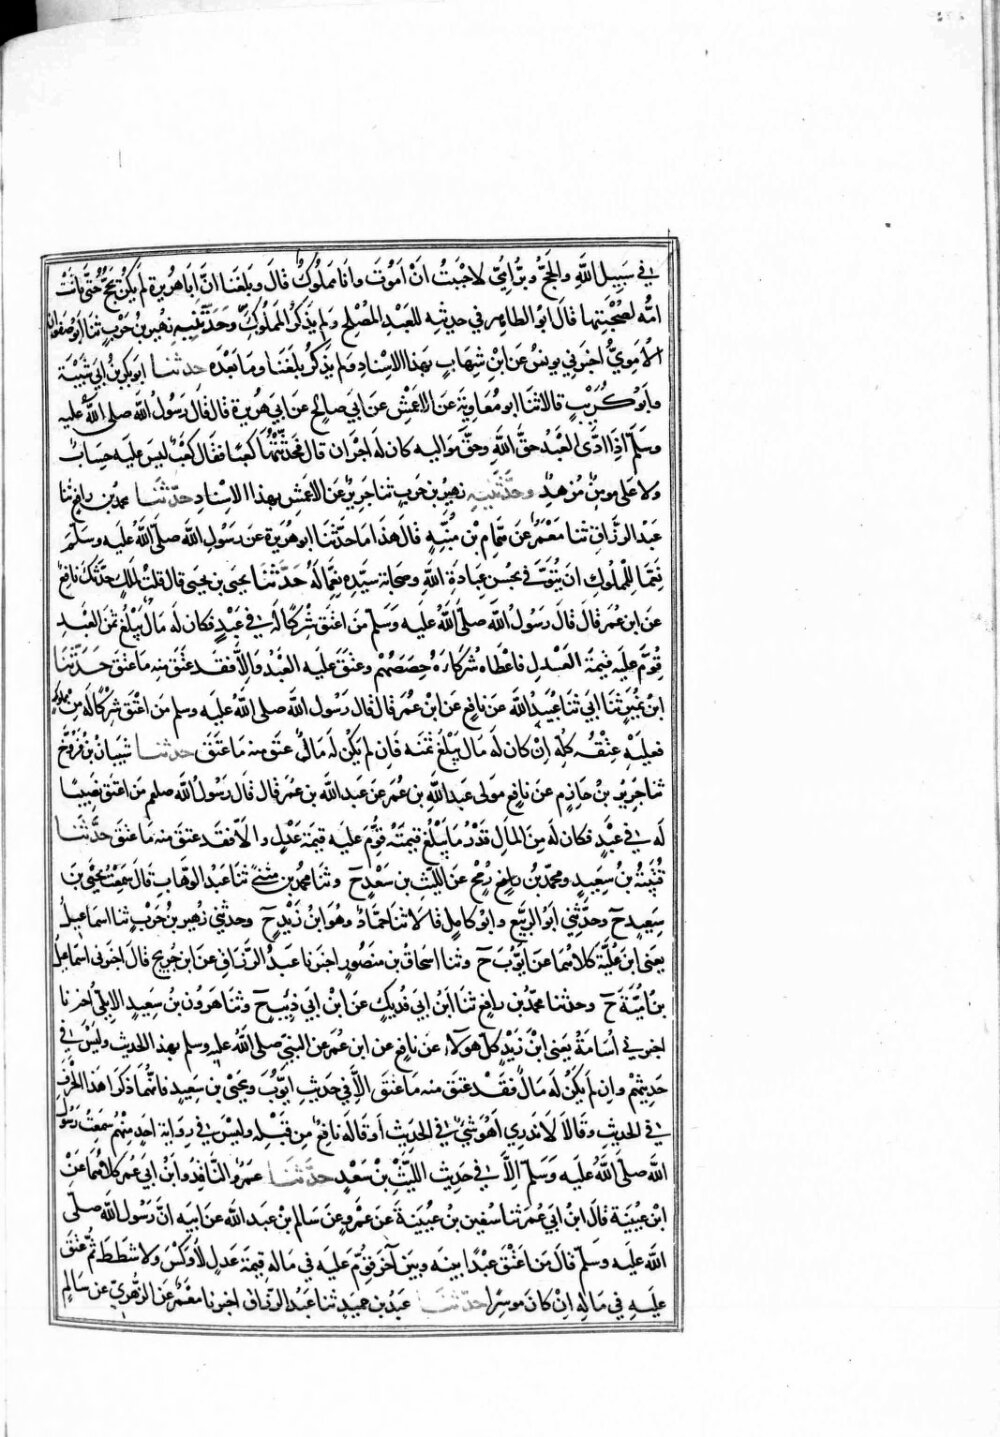 في سَبِيلِ اللَّهِ والحَجُّ وبِرُّ اُمِّي لاحْبَبْتُ انْ اَمُوتَ وانَا مَملُوكٌ قالَ وبلغَنا انَّ اَبا هُريرة لَم يَكُنْ يَحُجُّ حتَّى مَاتَتْ
امُّه لصُحْبَتِها قالَ ابو الطاهِر في حديثِه للعَبدِ المُصْلِحِ ولَم يذكُرِ المَملُوكَ وحَدَّثَنِيهِ زُهير بنُ حَرْبٍ ثنا ابُو صَفوان
الاُمَوِيُّ اخبَرنِي يونسُ عَنِ ابْنِ شِهابٍ بهَذا الاسْنادِ ولَم يذكُر بلَغَنا وما بَعْدَه حدثنا ابو بَكْرِ بْنُ ابي شَيْبَة
وابُو كُرَيْبٍ قالا ثنا ابو مُعَاوية عَنِ الاعْمَشِ عَن ابي صَالِحٍ عَن ابي هريرة قالَ قالَ رَسُولُ اللَّه صلى اللَّه عليه
وسلّم اِذَا ادَّى العَبْدُ حقَّ اللَّهِ وحَقَّ مَوَاليه كان لَه اجْرانِ قالَ فَحَدَّثْتُها كعبًا فقالَ كَعْبٌ ليسَ عليه حِسابٌ
ولا عَلى مومِنٍ مُزهِدٍ وحدَّثَنِيهِ زهير بن حَربٍ ثنا جَريرٌ عَنِ الاعْمشِ بهذا الاسْنادِ حدّثَنا محمد بن رافعٍ ثنا
عَبد الرزّاقِ ثنا مَعْمَرٌ عَن هَمّام بْن مُنَبِّهٍ قالَ هذا مَا حدَّثنا ابو هُرَيرة عَن رَسُولِ اللَّه صلّى اللَّهُ عليه وسَلَّم
نِعِمّا لِلْمَملُوكِ انْ يُتوَفّى بحُسْنِ عِبادَةِ اللَّهِ وصَحابة سيّدِه نِعِمَّا لَهُ حَدَّثنا يحيى بن يحيى قال قلتُ لمَالِكٍ حدّثَكَ نافِعٌ
عَن ابن عُمَر قالَ قالَ رَسُولُ اللَّه صلّى اللَّهُ عليه وَسَلّم مَن اعْتَق شِرْكًا لَه في عَبْدٍ فكان لَه مَالٌ يَبْلُغُ ثَمَنَ العَبْدِ
قُوِّمَ عليه قِيمَةَ العَدلِ فاعْطَى شُرَكاءَهُ حِصَصَهُم وعَتَقَ عليه العَبْدُ والّا فقد عَتَقَ منه مَا عتَقَ حَدَّثَنَا
ابْنُ نُمَيْرٍ ثنا ابي ثنا عُبَيدُ اللَّه عَن نافِعٍ عَن ابْن عُمَر قال قالَ رَسُول اللَّه صلى اللَّه عليه وسلم مَن اعْتَق شِركًا لَه مِن مملوكٍ
فعليهِ عِتْقُه كلّه اِنْ كان لَه مَالٌ يَبْلُغُ ثَمنَه فَاِن لم يَكُن لَه مَالٌ عتق منه مَا عَتَقَ حدثنا شيبان بن فَرُّوخَ
ثنا جرير بن حَازمٍ عن نافِعٍ مولى عَبد اللَّه بن عُمر عَن عَبد اللَّه بن عُمَر قالَ قالَ رَسُولُ اللَّه صلعم مَن اعْتَق نَصِيبًا
لَه في عَبْدٍ فكان لَه مِنَ المالِ قَدْرُ مَا يَبْلُغُ قِيمَتَه قُوِّمَ عليه قيمَةَ عَدْلٍ والّا فقد عتق منه مَا عتَقَ حدَّثَنا
قُتَيْبَةُ بن سَعِيدٍ ومحمّد بن رُمحٍ عَن الليْثِ بن سَعْدٍ ح وثنا محمد بن مثنى ثنا عَبْد الوَهابِ قالَ سَمِعْتُ يَحْيَى بن
سَعِيدٍ ح وحدَّثَنِي ابُو الرَّبيعِ وابُو كامِلٍ قالا ثنا حَمّادٌ وهُوَ ابْنُ زَيْدٍ ح وحدثني زهير بن حَرْبٍ ثنا اسمَاعيلُ
يعني ابن عُلَيَّة كلاهُما عَن ايُّوبَ ح وثنا اسحاق بن مَنصُورٍ اخبرنا عَبدُ الرَّزّاقِ عَن ابن جُريجٍ قالَ اخبرَنِي اسماعيلُ
بنُ اُمَيَّةَ ح وحدثنا محمّد بن رافعٍ ثنا ابْنُ ابي فُدَيْكٍ عَن ابْنِ ابي ذِئبٍ ح وثنا هَرُون بن سَعِيدٍ الايلِيُّ اخبرنا
اخبرني اُسَامَةُ يعني ابْنَ زَيْدٍ كلّ هولاءِ عن نافعٍ عن ابن عُمَر عن النبيّ صلّى اللَّهُ عليه وسلم بهذا الحديث وليْسَ في
حَدِيثِهِمْ واِن لَم يكُنْ لَه مَالٌ فقَدْ عتَق منه مَا عَتَقَ اِلّا في حَديثِ ايُّوبَ ويحيَى بن سَعِيدٍ فاِنَّهُما ذكَرا هَذا الحَرْفَ
في الحديثِ وقَالا لا نَدْرِي اَهُوَ شيءٌ في الحديثِ اوْ قالَه نافِعٌ مِن قِبَلِه وليْسَ في رِوَاية احدٍ منهُم سَمِعْتُ رَسُولَ
اللَّه صلّى اللَّهُ عليه وسَلّم الّا في حديث الليْثِ بْن سَعْدٍ حدّثنا عمرٌو النَّاقِدُ وابْنُ ابي عُمر كلاهُما عَن
ابْن عُيَيْنة قالَ ابنُ ابي عُمَر ثنا سُفين بن عُيَيْنَةَ عَن عَمْرٍو عَن سَالم بْن عبد اللَّه عَن ابيه انَّ رَسُولَ اللَّه صلّى
اللَّه عليه وسلّم قالَ مَن اعْتَقَ عبْدًا بينَه وبين آخرَ قُوِّمَ عليه في مَاله قيمة عَدلٍ لا وَكْسَ ولا شَطَطَ ثُمَّ عَتَقَ
عليهِ في مَالِه اِن كانَ موسِرًا حدّثنا عَبدُ بن حميدٍ ثنا عَبدُ الرزّاقِ اخبرنا مَعْمَرٌ عَن الزُّهْريّ عن سَالمٍ